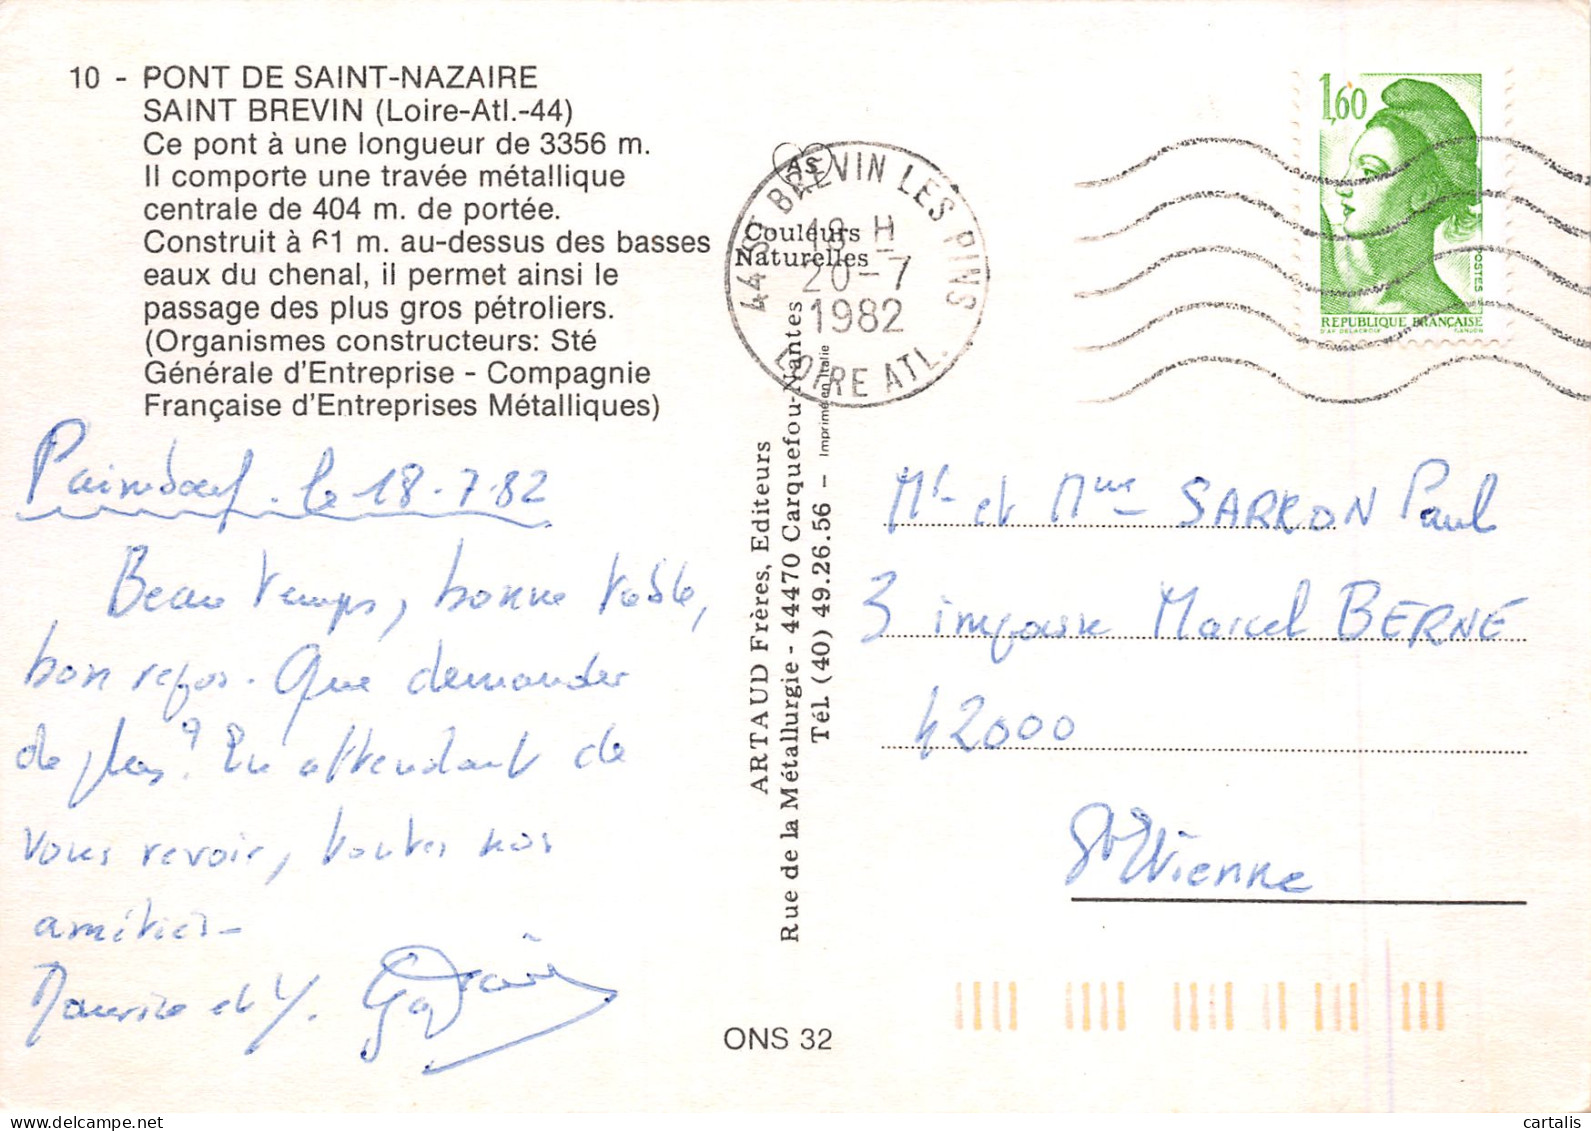 10 - PONT DE SAINT-NAZAIRE
SAINT BREVIN (Loire-Atl.-44)
Ce pont à une longueur de 3356 m.
Il comporte une travée métallique
centrale de 404 m. de portée.
Construit à 61 m. au-dessus des basses
eaux du chenal, il permet ainsi le
passage des plus gros pétroliers.
(Organismes constructeurs: Sté
Générale d'Entreprise - Compagnie
Française d'Entreprises Métalliques)
Paimboeuf. le 18.7.82
Beau temps, bonne table,
bon repos. Que demander
de plus? En attendant de
vous revoir, toutes nos
amitiés-
Maurice et Y.
AS
Couleurs
Naturelles
44 ST BREVIN LES PINS
18 H
20-7
1982
LOIRE ATL.
ARTAUD Frères, Editeurs
Rue de la Métallurgie - 44470 Carquefou-Nantes
Tél. (40) 49.26.56 - Imprimé en Italie
ONS 32
1,60
POSTES
REPUBLIQUE FRANÇAISE
D'AP. DELACROIX GANDON
Mr et Mme SARRON Paul
3 impasse Marcel BERNE
42000
St Etienne
cartalis
delcampe.net